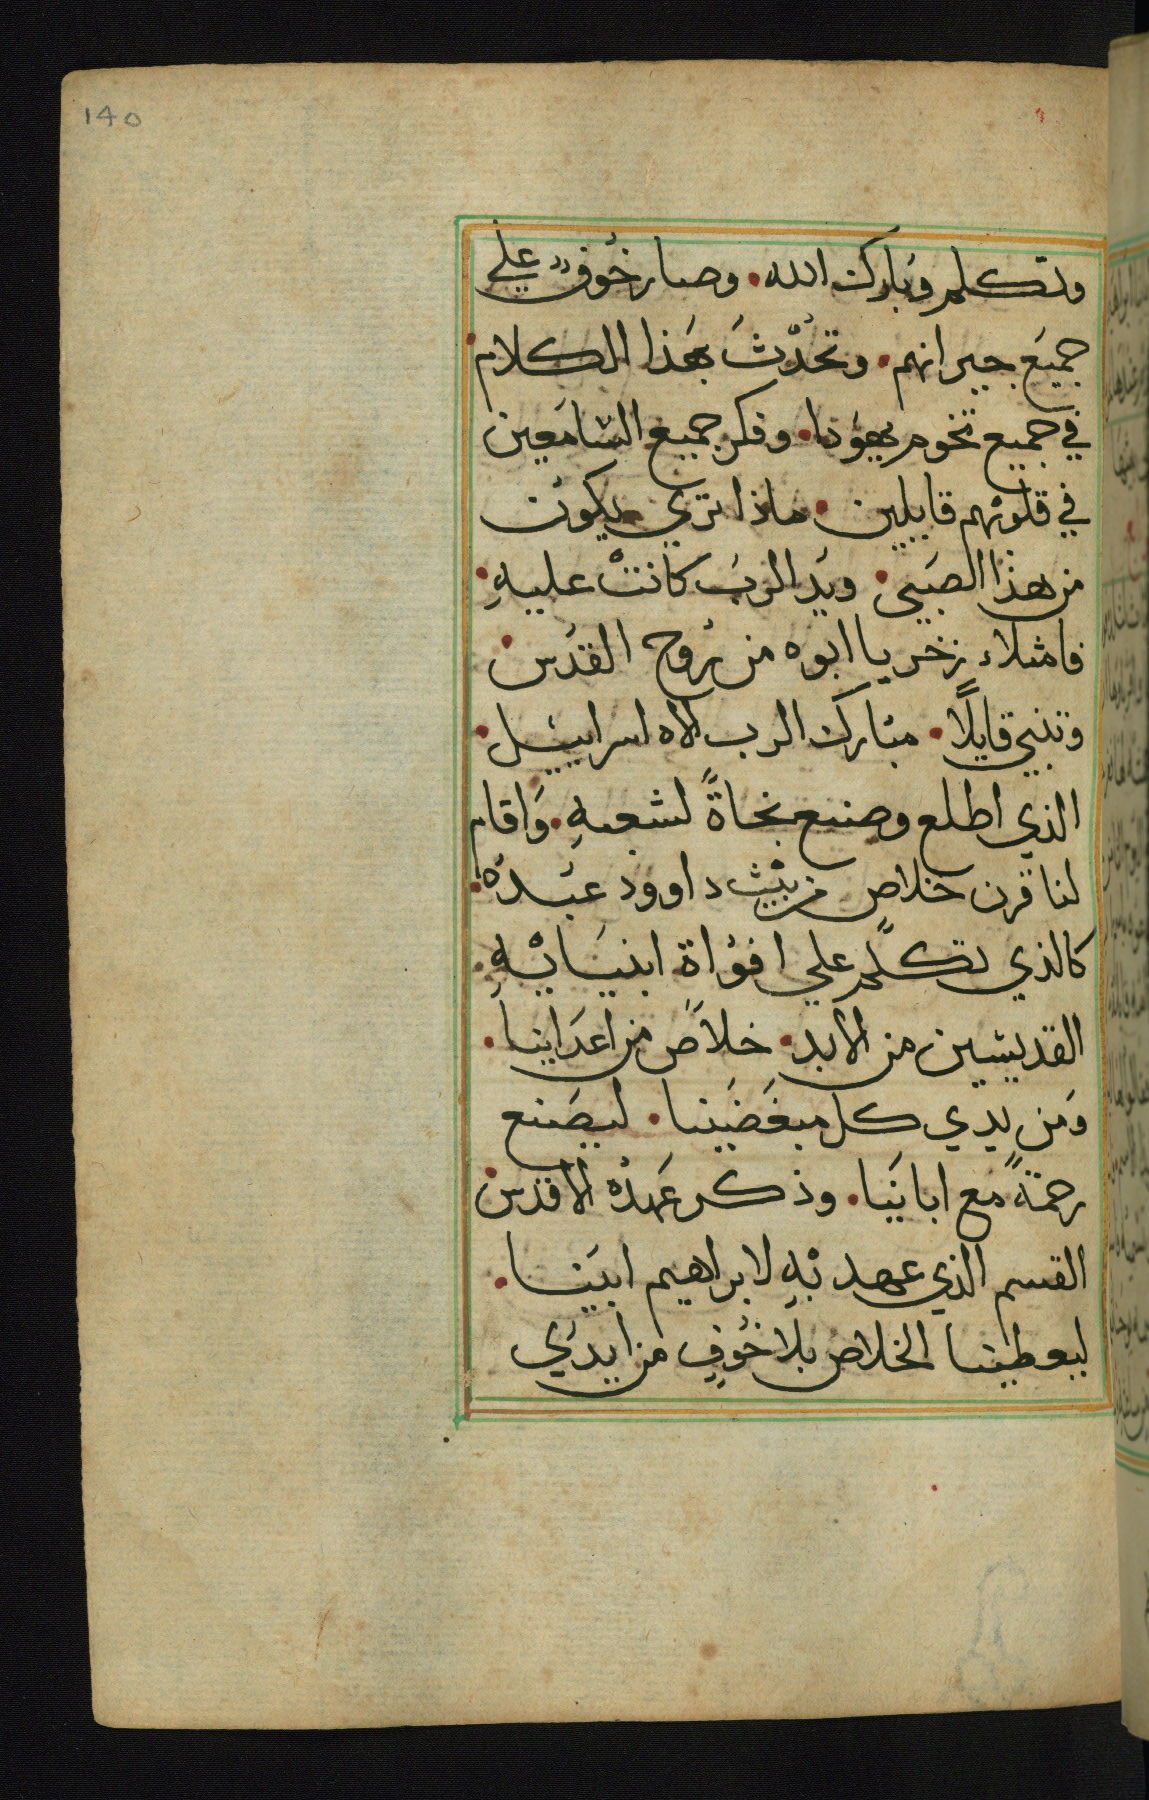 140
وتكلم وبارك الله. وصار خوفٌ علي
جميع جيرانهم. وتحدّث بهذا الكلام
في جميع تخوم يهودا. وفكر جميع السامعين
في قلوبهم قايلين. ماذا تري يكون
من هذا الصبي. ويد الرب كانتْ عليهِ.
فامتلاء زخريا ابوه من روح القدس
وتنبي قايلًا. مبارك الرب الاه اسراييل.
الذي اطلع وصنع نجاةً لشعبهِ. وَاقام
لنا قرن خلاص من بيْت داوود عبده.
كالذي تكلّم علي افواة انبيايْهِ.
القديسين من الابد. خلاصَ من اعدَاينا.
وَمن يدي كل مبغضَينا. ليصَنع
رحمةً مع اباينَا. وذكر عَهدهْ الاقدس
القسم الذي عهد بْهِ لابراهيم ابينا.
ليعطينا الخلاص بلَا خوفٍ من ايدي